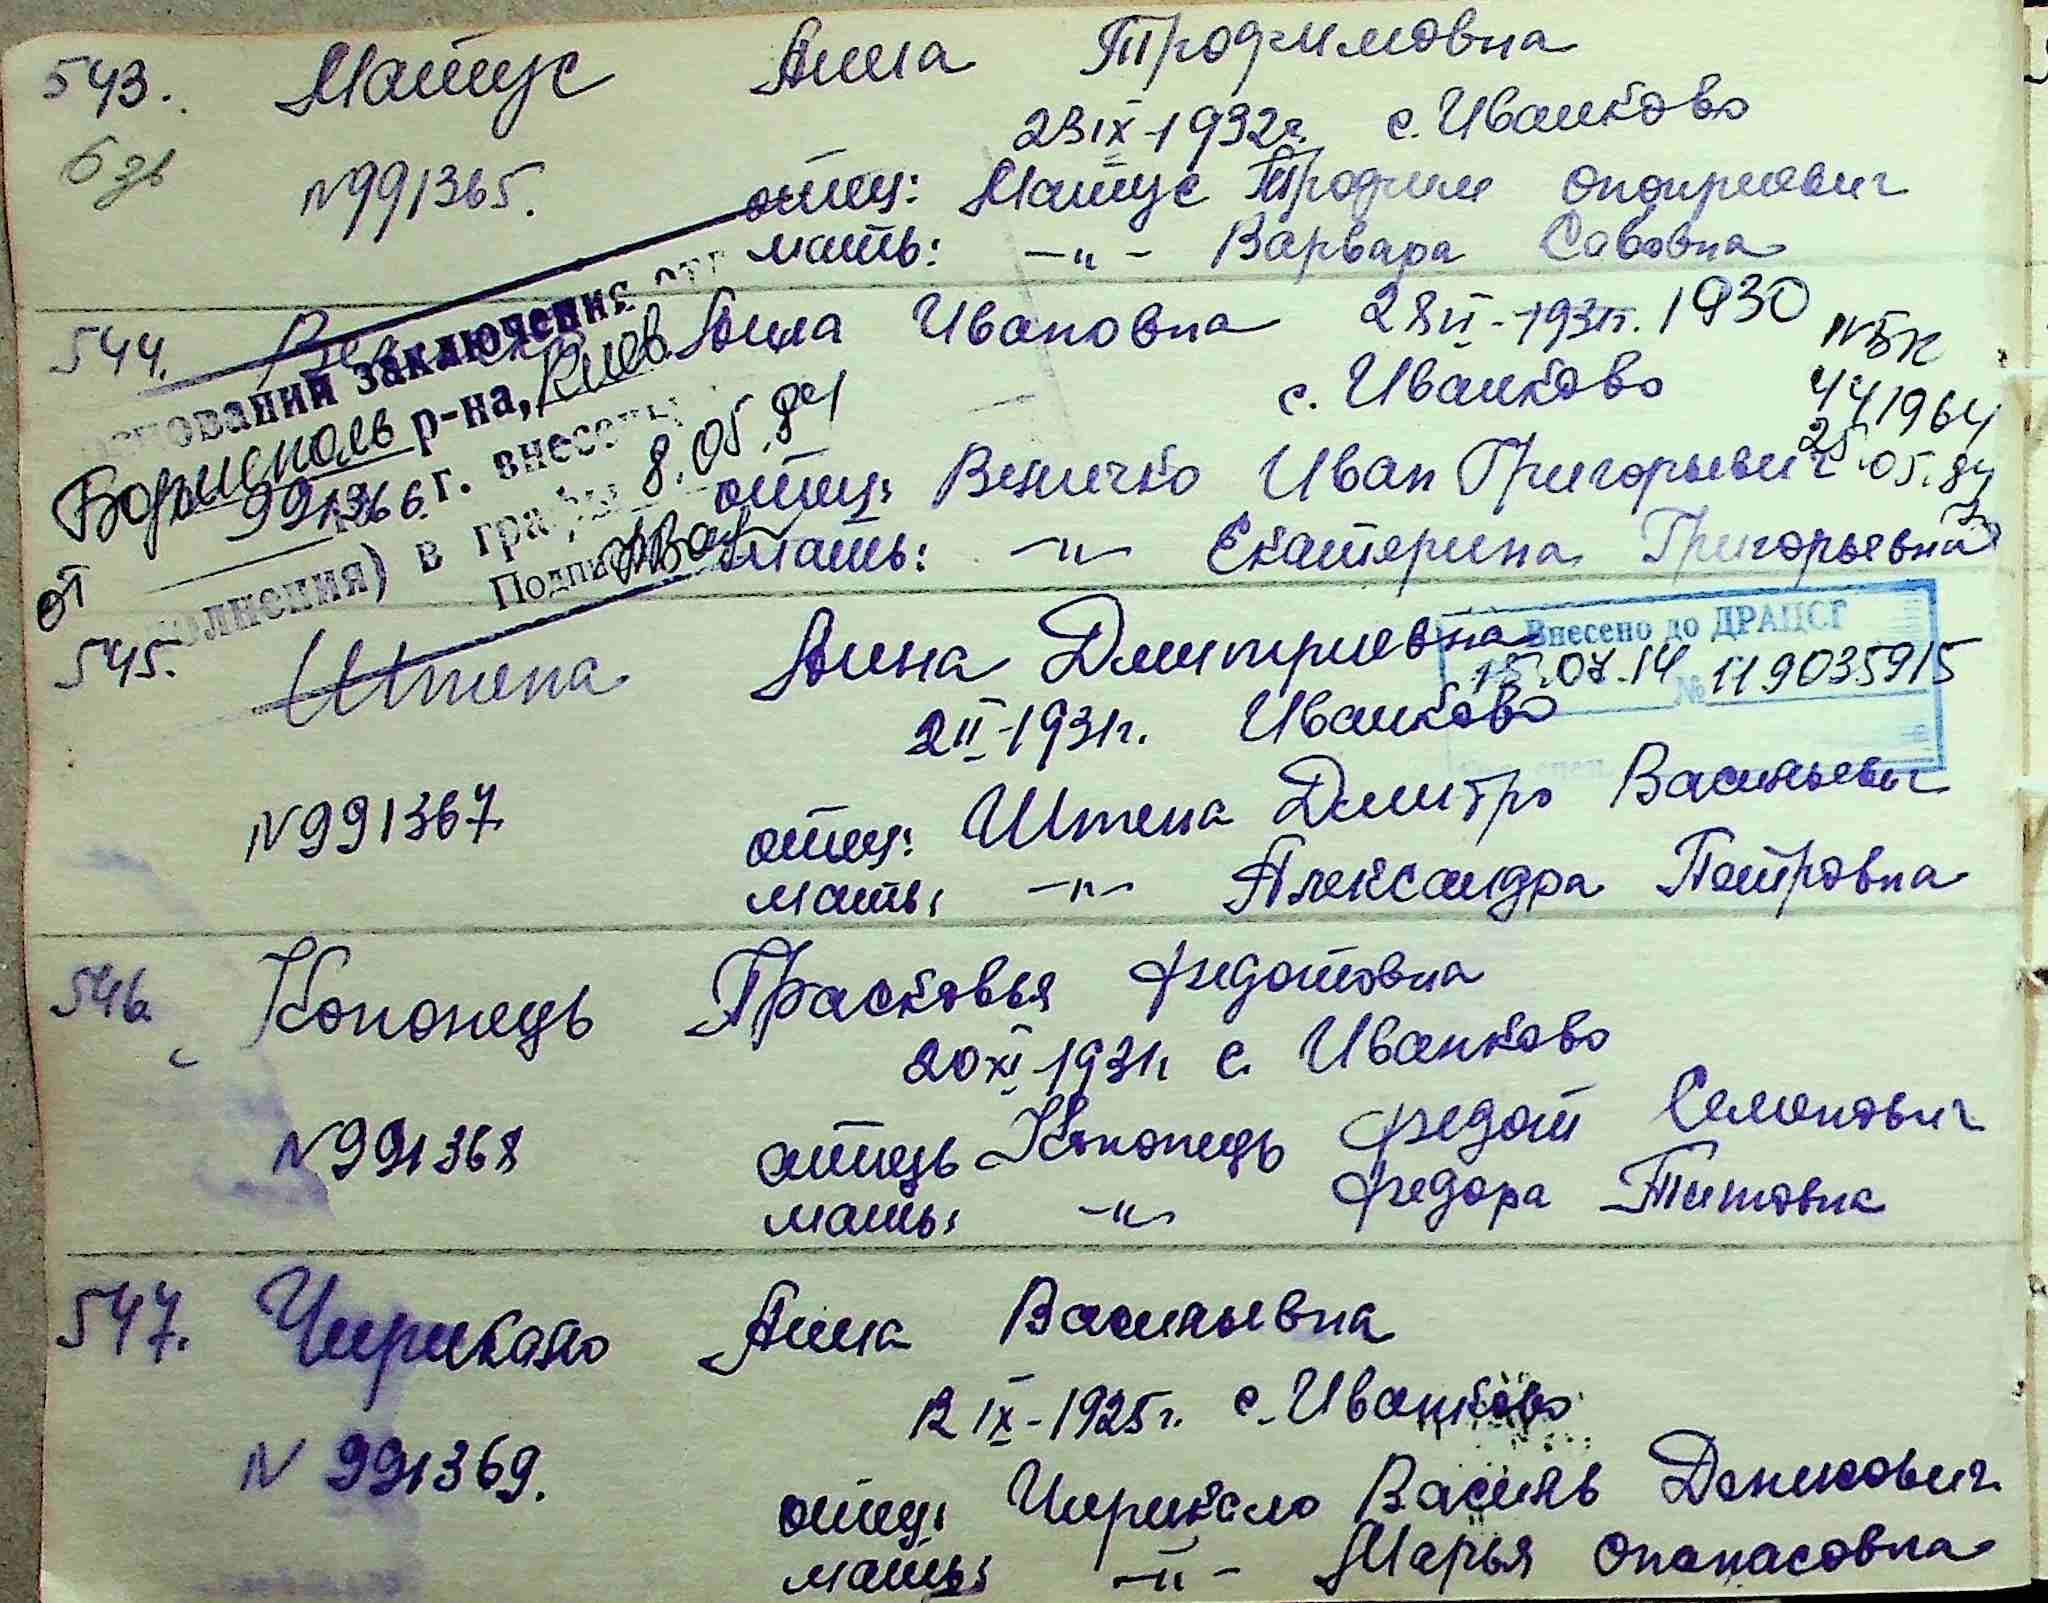 543. Матус Анна Трофимовна
23 IX-1932г. с. Иванково
6 зв
N991365.
отец: Матус Трофим Опонриевич
мать: -"- Варвара Савовна
544. Анна Ивановна 28 II-1931г. 1930
с. Иванково
N БК
441964
25.05.84
оснований заключения отд
Борисполь р-на, Киев
от 991366. г. внесены
8.05.84
полнения) в графы
Подпи
отец: Величко Иван Григорьевич
мать: -"- Екатерина Григорьевна
545. Штепа Анна Дмитриевна
2 II-1931г. Иванково
Внесено до ДРАЦСГ
15.07.14 № 119035915
N991367
отец: Штепа Дмитро Васильевич
мать: -"- Александра Петровна
546. Кононець Прасковья Федотовна
20 XI-1931г с. Иванково
N991368
отець Кононець Федот Семонович
мать: -"- Федора Титовна
547. Чирикало Анна Васильевна
12 IX-1925г. с. Иванково
N 991369.
отец: Чирикало Василь Денисович
мать: -"- Марья Опанасовна